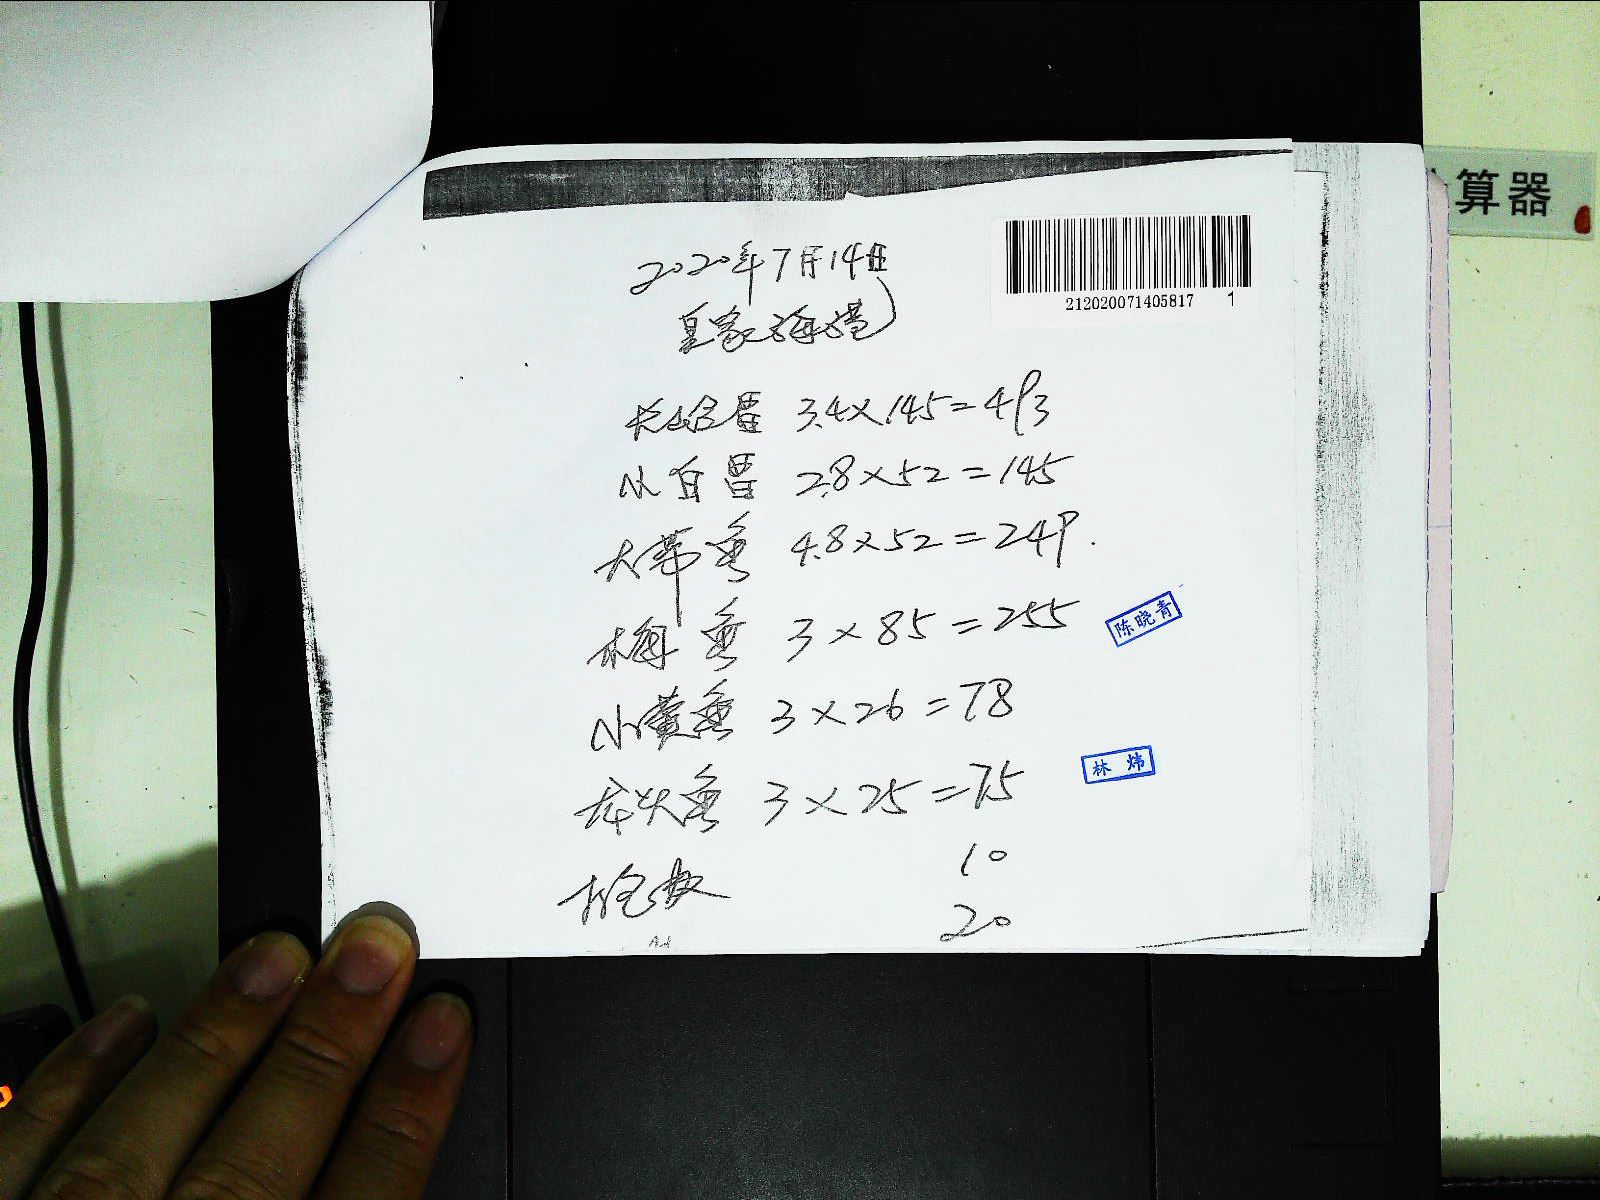 算器
2020年7月14日
212020071405817 1
皇家海港
3.4×145=493
小白 2.8×52=145
大带鱼 4.8×52=249
梅鱼 3×85=255
陈晓青
小黄鱼 3×26=78
龙头鱼 3×25=75
林炜
10
20